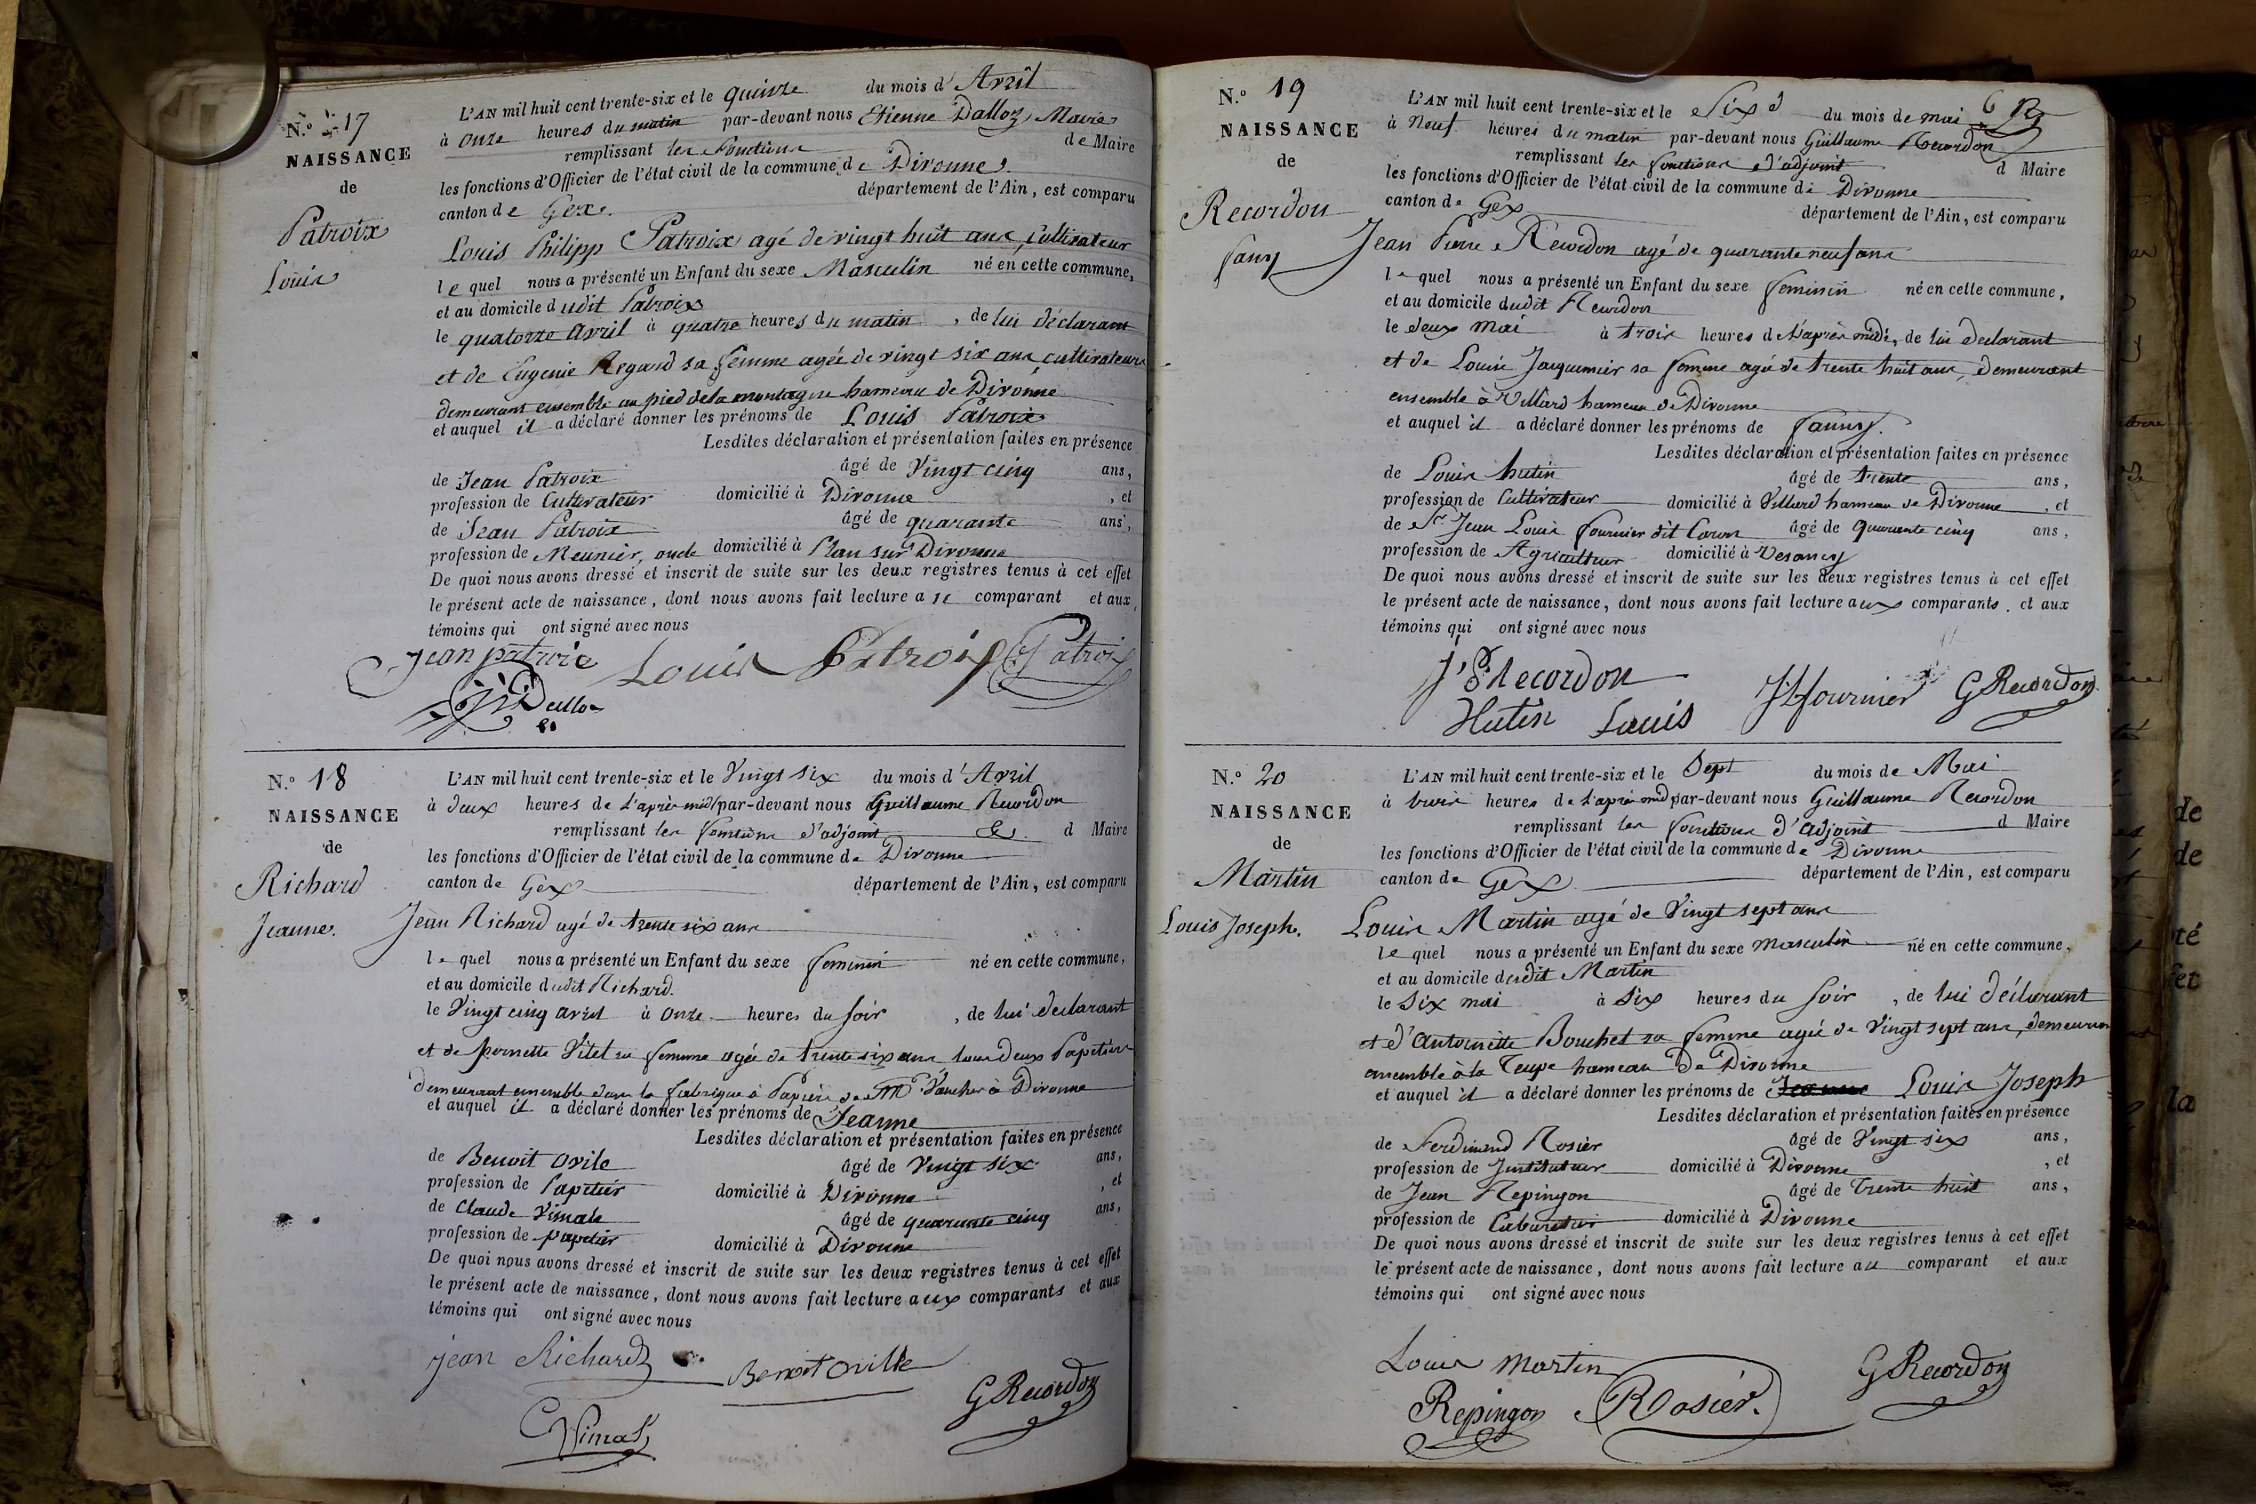 N.º 17
NAISSANCE
de
Patroix
Louis
L'AN mil huit cent trente-six et le quinze du mois d' Avril
à onze heures du matin par-devant nous Etienne Dalloz, Maire
remplissant les fonctions de Maire
les fonctions d'Officier de l'état civil de la commune de Divonne
canton de Gex. département de l'Ain, est comparu
Louis Philipp Patroix agé de vingt huit ans, Cultivateur
le quel nous a présenté un Enfant du sexe Masculin né en cette commune,
et au domicile dudit Patroix
le quatorze avril à quatre heures du matin, de lui déclarant
et de Eugenie Regard sa femme agée de vingt six ans, cultivateurs
demeurant ensemble au pied de la montagne hameau de Divonne
et auquel il a déclaré donner les prénoms de Louis Patroix
Lesdites déclaration et présentation faites en présence
de Jean Patroix âgé de Vingt cinq ans,
profession de Cultivateur domicilié à Divonne, et
de Jean Patroix âgé de quarante ans,
profession de Meunier, oncle domicilié à Plan sur Divonne
De quoi nous avons dressé et inscrit de suite sur les deux registres tenus à cet effet
le présent acte de naissance, dont nous avons fait lecture a le comparant et aux
témoins qui ont signé avec nous
Jean patroix Louis Patroix Patroix
Dalloz
N.º 18
NAISSANCE
de
Richard
Jeanne.
L'AN mil huit cent trente-six et le Vingt six du mois d' Avril
à deux heures de l'après midi par-devant nous Guillaume Recordon
remplissant les fonctions d'adjoint d Maire
les fonctions d'Officier de l'état civil de la commune de Divonne
canton de Gex département de l'Ain, est comparu
Jean Richard agé de trente six ans
le quel nous a présenté un Enfant du sexe feminin né en cette commune,
et au domicile dudit Richard.
le Vingt cinq avril à onze heures du soir, de lui declarant
et de pernette Vitet sa femme agée de trente six ans tous deux Papetiers
demeurant ensemble dans la fabrique à Papier de Mr Vaucher à Divonne
et auquel il a déclaré donner les prénoms de Jeanne
Lesdites déclaration et présentation faites en présence
de Benoit Ovile âgé de Vingt six ans,
profession de Papetier domicilié à Divonne, et
de Claude Vimale âgé de quarante cinq ans,
profession de papetier domicilié à Divonne
De quoi nous avons dressé et inscrit de suite sur les deux registres tenus à cet effet
le présent acte de naissance, dont nous avons fait lecture a ux comparants et aux
témoins qui ont signé avec nous
jean Richard Benoit Oville G Recordon
Vimal
N.º 19
NAISSANCE
de
Recordon
fany
L'AN mil huit cent trente-six et le Six du mois de mai 6
à Neuf heures du matin par-devant nous Guillaume Recordon
remplissant les fonctions d'adjoint d Maire
les fonctions d'Officier de l'état civil de la commune de Divonne
canton de Gex département de l'Ain, est comparu
Jean Pierre Recordon agé de quarante neuf ans
le quel nous a présenté un Enfant du sexe feminin né en cette commune,
et au domicile dudit Recordon
le deux mai à trois heures de l'après midi, de lui declarant
et de Louise Jacquemier sa femme agée de trente huit ans, demeurant
ensemble à Villard hameau de Divonne
et auquel il a déclaré donner les prénoms de fanny.
Lesdites déclaration et présentation faites en présence
de Louis hutin âgé de trente ans,
profession de Cultivateur domicilié à Villard hameau de Divonne, et
de Sr Jean Louis fournier dit Caron âgé de quarante cinq ans,
profession de Agriculteur domicilié à Vesancy
De quoi nous avons dressé et inscrit de suite sur les deux registres tenus à cet effet
le présent acte de naissance, dont nous avons fait lecture a ux comparants et aux
témoins qui ont signé avec nous
J P Recordon JLfournier G Recordon
Hutin Louis
N.º 20
NAISSANCE
de
Martin
Louis Joseph.
L'AN mil huit cent trente-six et le Sept du mois de Mai
à trois heures de l'après midi par-devant nous Guillaume Recordon
remplissant les fonctions d'adjoint d Maire
les fonctions d'Officier de l'état civil de la commune de Divonne
canton de Gex département de l'Ain, est comparu
Louis Martin agé de Vingt sept ans
le quel nous a présenté un Enfant du sexe masculin né en cette commune,
et au domicile dudit Martin
le Six mai à Six heures du soir, de lui déclarant
et d'Antoinette Bouchet sa femme agée de Vingt sept ans, demeurant
ensemble à la Teupe hameau de Divonne
et auquel il a déclaré donner les prénoms de Jeanne Louis Joseph
Lesdites déclaration et présentation faites en présence
de Ferdinand Rosier âgé de Vingt six ans,
profession de Instituteur domicilié à Divonne, et
de Jean Repingon âgé de trente huit ans,
profession de Cabaretier domicilié à Divonne
De quoi nous avons dressé et inscrit de suite sur les deux registres tenus à cet effet
le présent acte de naissance, dont nous avons fait lecture au comparant et aux
témoins qui ont signé avec nous
Louis Martin G Recordon
Repingon Rosier.